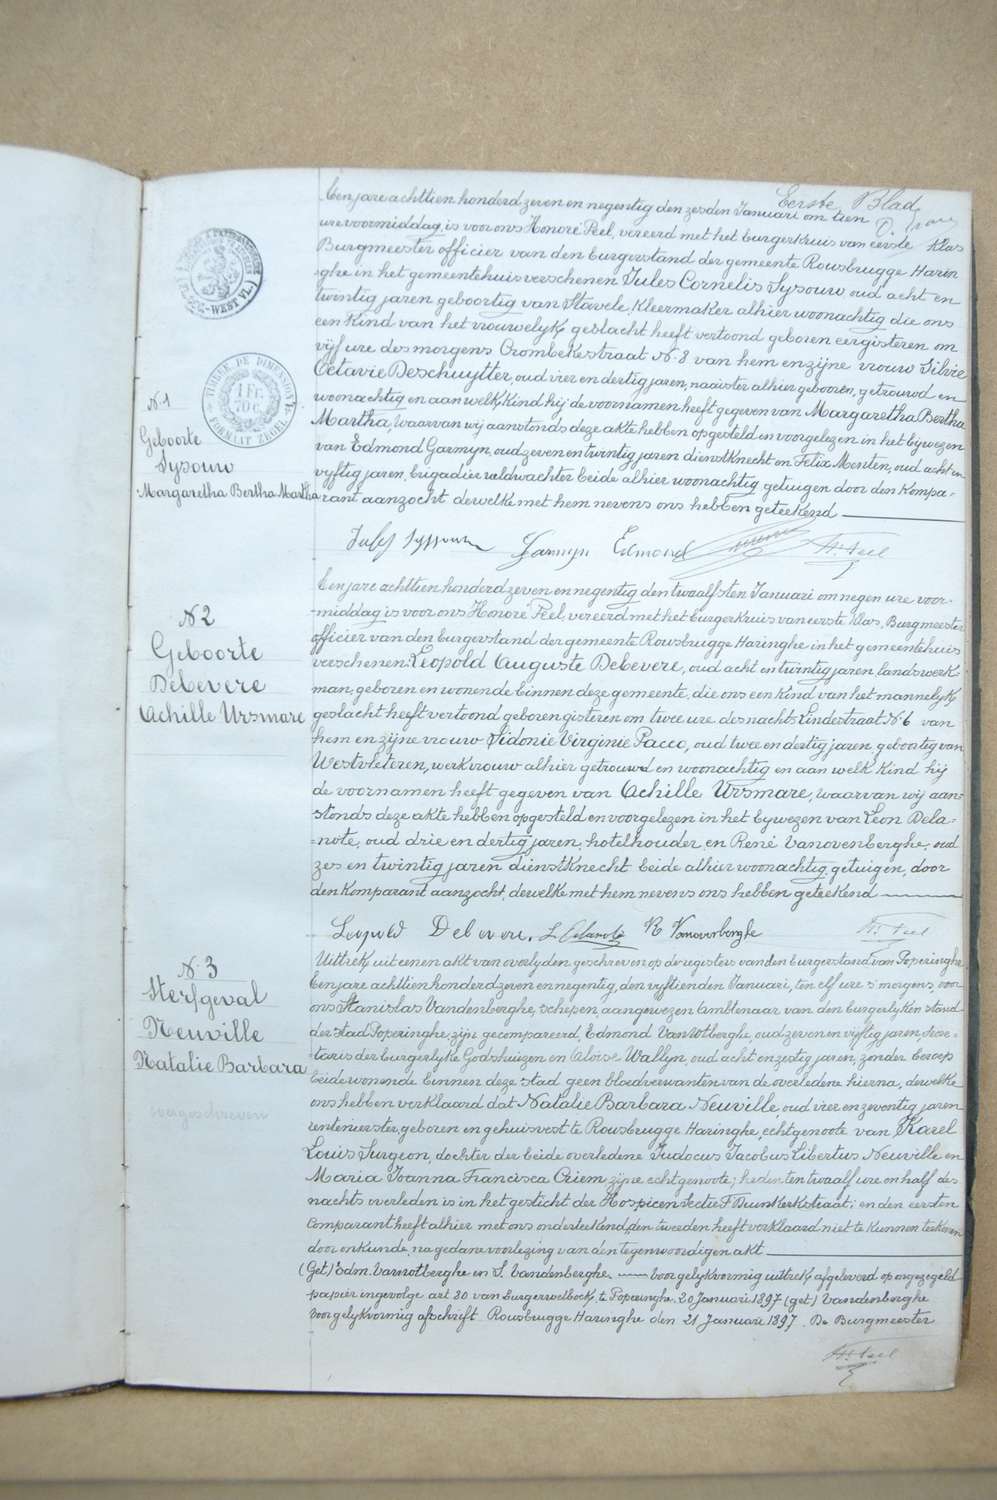 Eerste Blad
Een jare achttien honderd zeven en negentig den zesden Januari om tien
ure voormiddag is voor ons Honoré Peel, vereerd met het burgerkruis van eerste klas
Burgmeester officier van den burgerstand der gemeente Rousbrugge Harin
-ghe in het gemeentehuis verschenen Jules Cornelis Sysouw oud acht en
twintig jaren geboortig van Stavele, kleermaker alhier woonachtig die ons
een kind van het vrouwelyk geslacht heeft vertoond geboren eergisteren om
vijf ure des morgens Crombekestraat N. 8 van hem en zijne vrouw Silvie
Octavie Deschuytter, oud vier en dertig jaren, naaister alhier geboren, getrouwd en
woonachtig en aan welk kind hij de voornamen heeft gegeven van Margaretha Bertha
Martha, waarvan wij aanstonds deze akte hebben opgesteld en voorgelezen in het bywezen
van Edmond Garmyn, oud zeven en twintig jaren dienstknecht en Felix Menten, oud acht en
vyftig jaren, brigadier valdwachter beide alhier woonachtig getuigen door den kompa-
rant aanzocht dewelke met hem nevens ons hebben geteekend
N. 1
Geboorte
Sysouw
Margaretha Bertha Martha
TIMBRE DE DIMENSION
1 Fr.
70 c.
FORMAT ZEGEL
WEST VL.
Jules Sysouw Garmyn Edmond H. Peel
Een jare achttien honderd zeven en negentig den twaalfsten Januari om negen ure voor-
-middag is voor ons Honoré Peel, vereerd met het burgerkruis van eerste klas, Burgmeester
officier van den burgerstand der gemeente Rousbrugge Haringhe in het gemeentehuis
verschenen Leopold Auguste Debevere, oud acht en twintig jaren, landswerk
man, geboren en wonende binnen deze gemeente, die ons een kind van het mannelyk
geslacht heeft vertoond geboren gisteren om twee ure des nachts Lindestraat N. 6 van
hem en zijne vrouw Sidonie Virginie Pacco, oud twee en dertig jaren, geboortig van
Westvleteren, werkvrouw alhier getrouwd en woonachtig en aan welk kind hij
de voornamen heeft gegeven van Achille Ursmare, waarvan wij aan-
stonds deze akte hebben opgesteld en voorgelezen in het bywezen van Leon Dela-
-note, oud drie en dertig jaren, hotelhouder, en René Vanovenberghe, oud
zes en twintig jaren dienstknecht beide alhier woonachtig, getuigen, door
den komparant aanzocht, dewelke met hem nevens ons hebben geteekend
N. 2
Geboorte
Debevere
Achille Ursmare
Leopold Debevere, L. Delanote R Vanovenberghe H. Peel
Uittrek uit eenen akt van overlyden geschreven op de registers van den burgerstand van Poperinghe
Een jare achttien honderd zeven en negentig, den vyftienden Januari, ten elf ure s'morgens, voor
ons Stanislas Vandenberghe, schepen, aangewezen ambtenaar van den burgerlyken stand
der stad Poperinghe, zijn gecompareerd, Edmond Vanrotberghe, oud zeven en vyftig jaren, secre-
taris der burgerlyke Godshuizen en Aloise Wallyn, oud acht en zestig jaren, zonder beroep
beide wonende binnen deze stad geen bloedverwanten van de overledene hierna, dewelke
ons hebben verklaard dat Natalie Barbara Neuville, oud vier en zeventig jaren
rentenierster, geboren en gehuisvest te Rousbrugge Haringhe, echtgenoote van Karel
Louis Surgeon, dochter der beide overledene Judocus Jacobus Libertus Neuville en
Maria Joanna Francisca Criem zijne echtgenoote; heden ten twaalf ure en half des
nachts overleden is in het gesticht der Hospicen sectie F Duinkerkstraat; en den eersten
comparant heeft alhier met ons onderteekend, den tweeden heeft verklaard niet te kunnen teekenen
door onkunde, na gedane voorlezing van den tegenwoordigen akt
(Get) Edm. Vanrotberghe en S. Vandenberghe. Voor gelykvormig uittrek afgeleverd op ongezegeld
papier ingevolge art 80 van Burgerwetboek, te Poperinghe 20 Januari 1897 (get) Vandenberghe
Voor gelykvormig afschrift Rousbrugge Haringhe den 21 Januari 1897. De Burgmeester
H. Peel
N. 3
Sterfgeval
Neuville
Natalie Barbara
overgeschreven